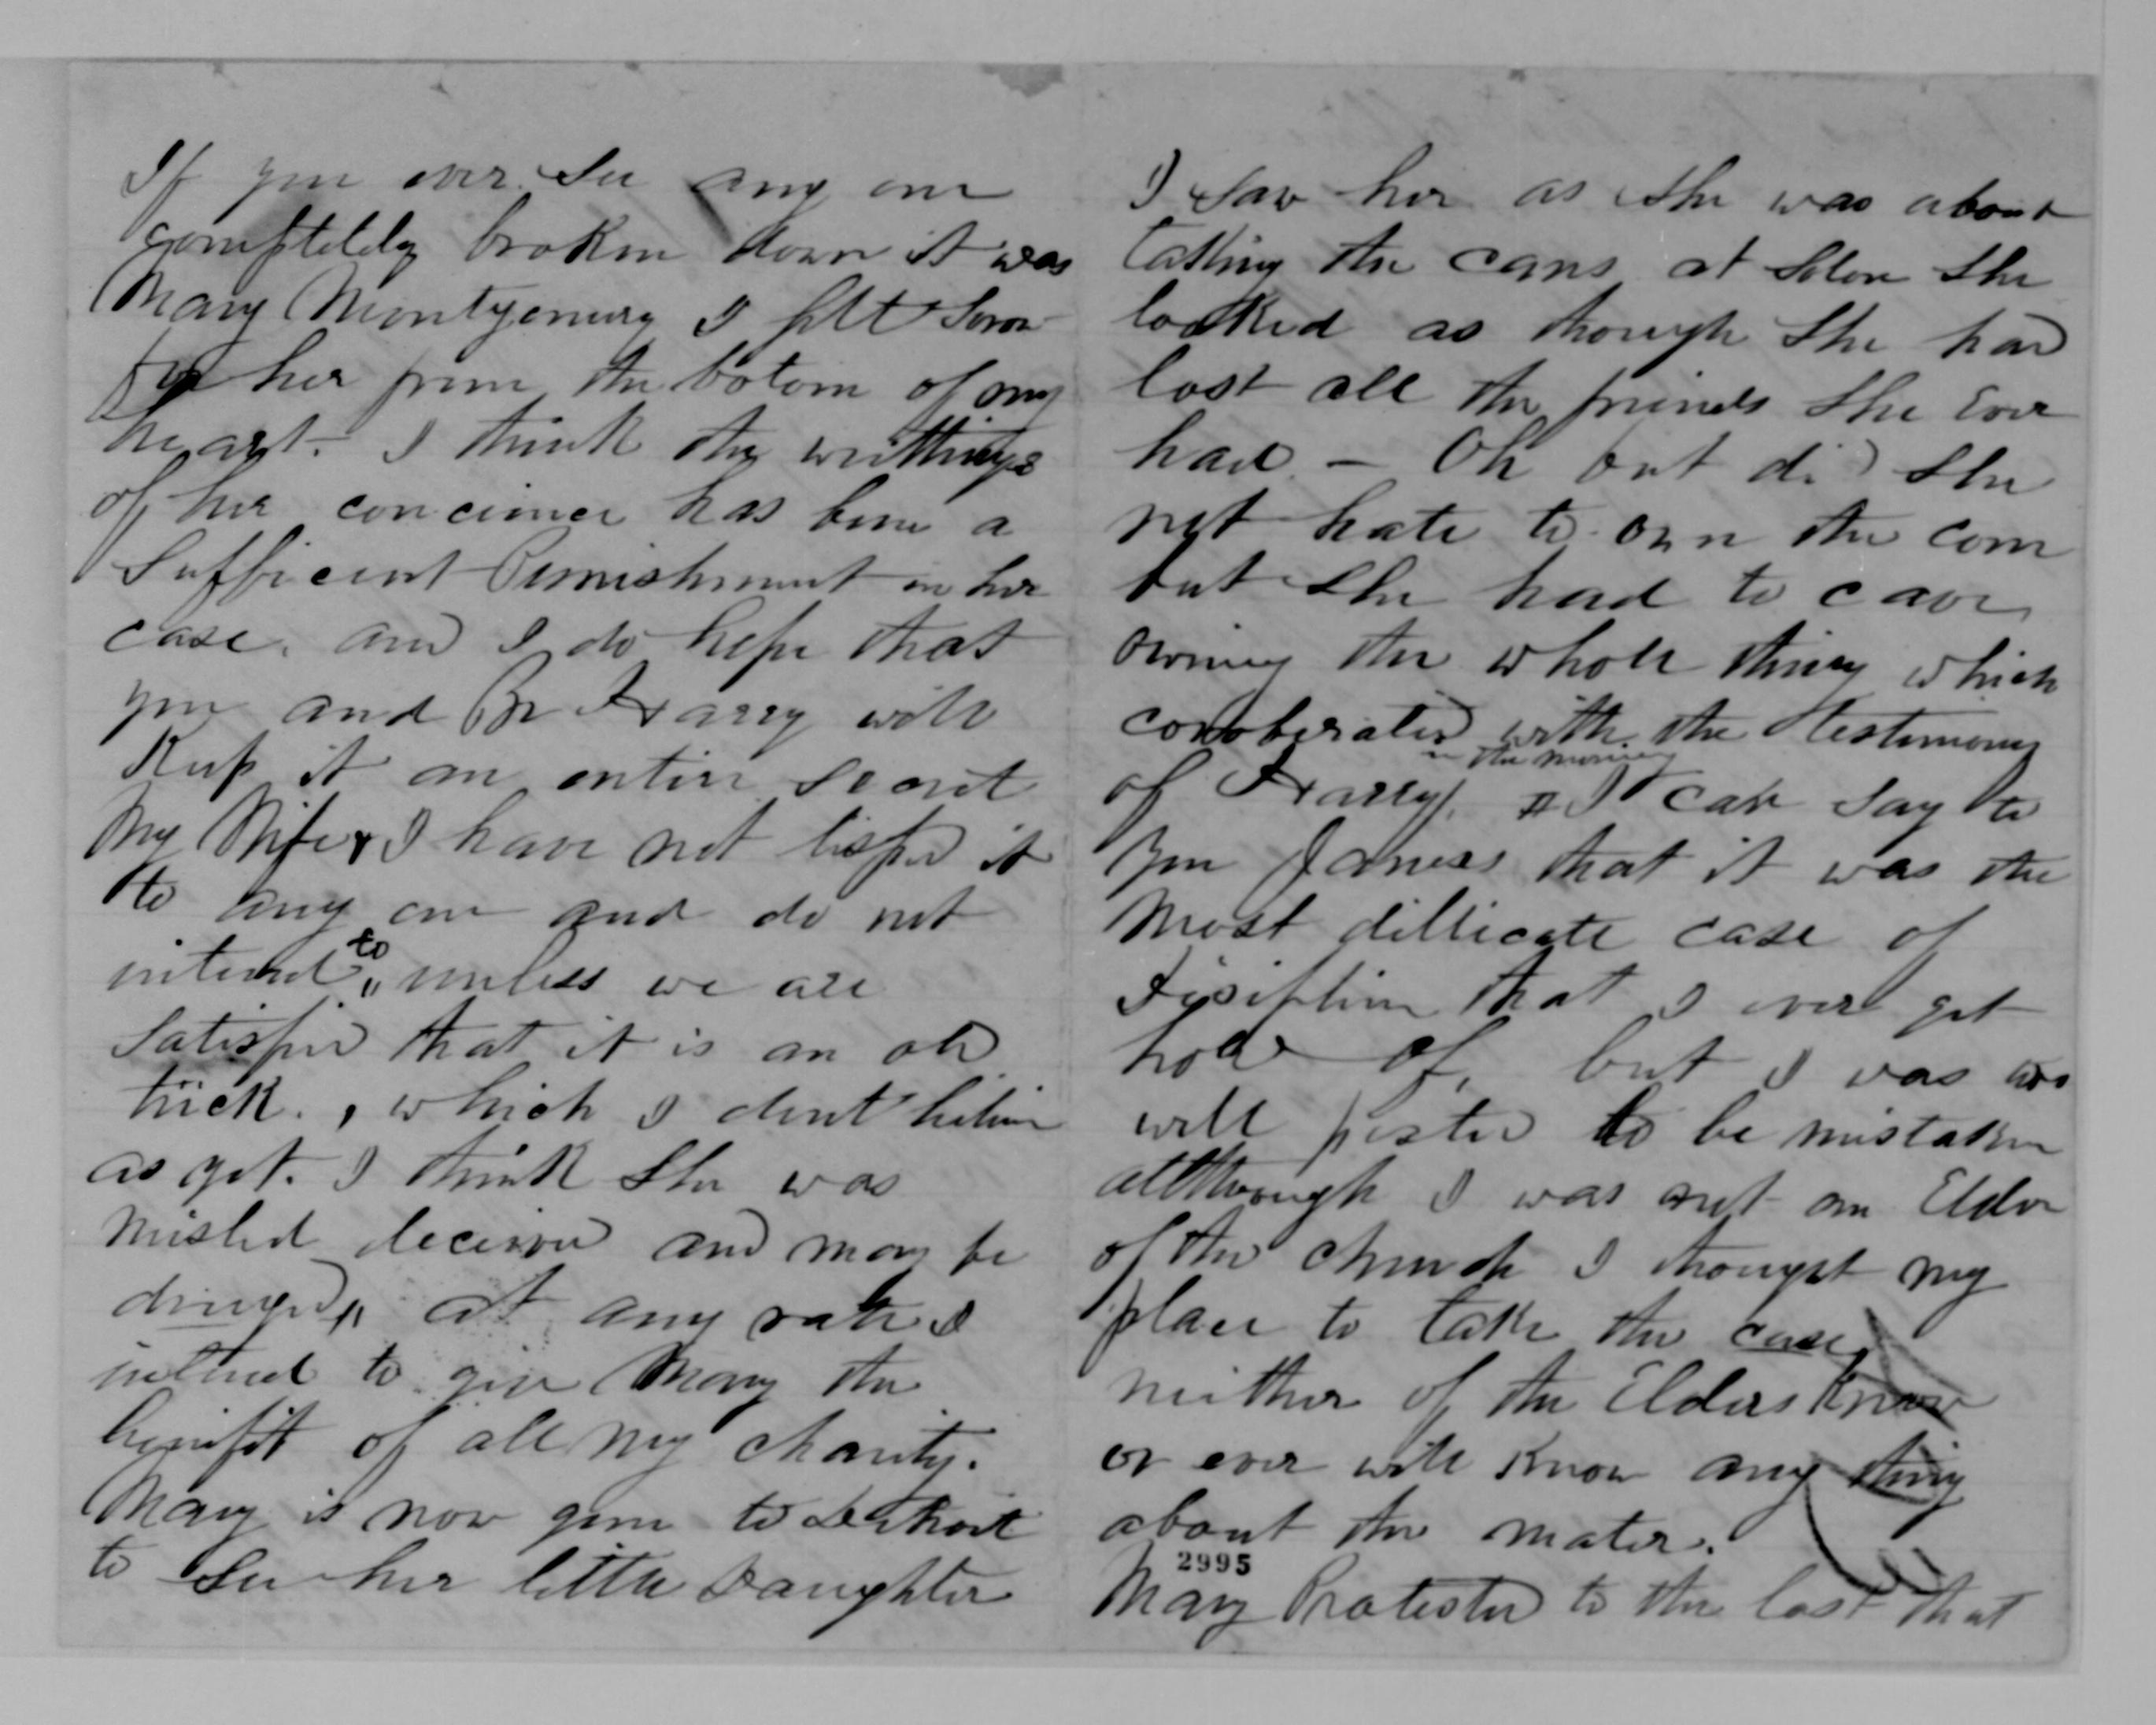 If you ever See any one
completely broken down it was
Mary Montgomery I felt Sorow
for her from the botom of my
heart. I think the writhings
of her concience has been a
Sufficient Punishment in her
case. and I do hope that
you and Br Harry will
Keep it an entire Secret
My Wife & I have not lisped it
to any one and do not
intend to unless we are
Satisfied that it is an old
trick., which I dont believe
as yet. I think She was
misled decieved and may be
druged, at any rate I
intend to give Mary the
benifit of all my charity.
Mary is now gone to Detroit
to See her little Daughter
I Saw her as She was about
takking the cars at Solon She
looked as though She had
lost all the friends She Ever
had. — Oh but did She
not hate to own the corn
but She had to cave
owning the whole thing which
corroberated with the testimony
in the morning
of Harry. I can Say to
you James that it was the
most dillicate case of
Disipline that I ever got
hold of, but I was too
well posted to be mistaken
allthough I was not an Elder
of the church I thought my
place to take the case
neither of the Elders Know
or ever will Know any thing
about the mater.
2995
Mary Protested to the last that